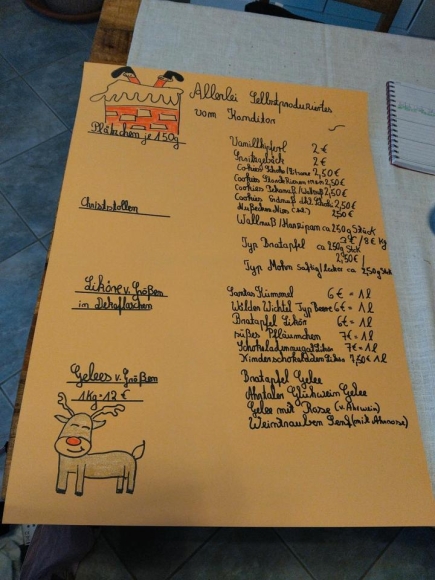 Allerlei Selbstproduziertes
vom Konditor
Plätzchen je 150g
Vanillkipferl 2€
Spritzgebäck 2€
Cookies Schoko 2,50€
Cookies 2,50€
Cookies 2,50€
Cookies 2,50€
2,50€
Christstollen
Walnuß/Marzipan ca 250g Stück
2€/8€ Kg
Typ Bratapfel ca 250g Stck
2,50€/
Typ Mohn saftig/lecker ca 250g Stck
Liköre v. Größen
in Dekoflaschen
Santas Kümmel 6€ = 1l
Wilder Wichtel Typ Beere 6€ = 1l
Bratapfel Likör 6€ = 1l
süßes Pfläumchen 7€ = 1l
Schokoladennougat Likör 7€ = 1l
Kinderschokoladen Likör 7,50€ = 1l
Gelees v. Größen
1Kg = 12€
Bratapfel Gelee
Ahrtaler Glühwein Gelee
Gelee mit Rasse (v. Ahrwein)
Weintrauben Senf (mit Ahrrose)